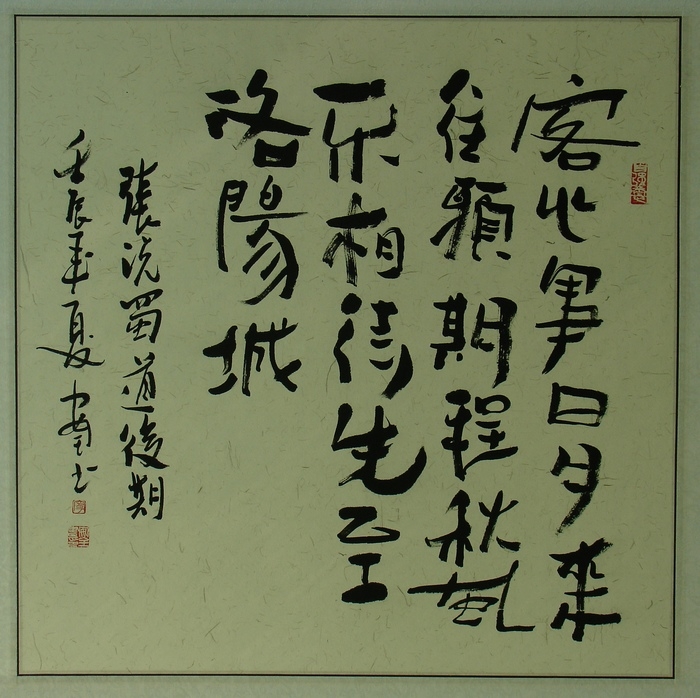 客心爭日月來
往預期程秋風
不相待先至
洛陽城
張説蜀道後期
壬辰年夏書